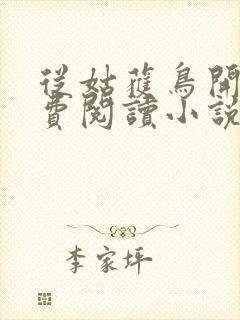 從姑獲鳥開
費閱讀小說
李家坪